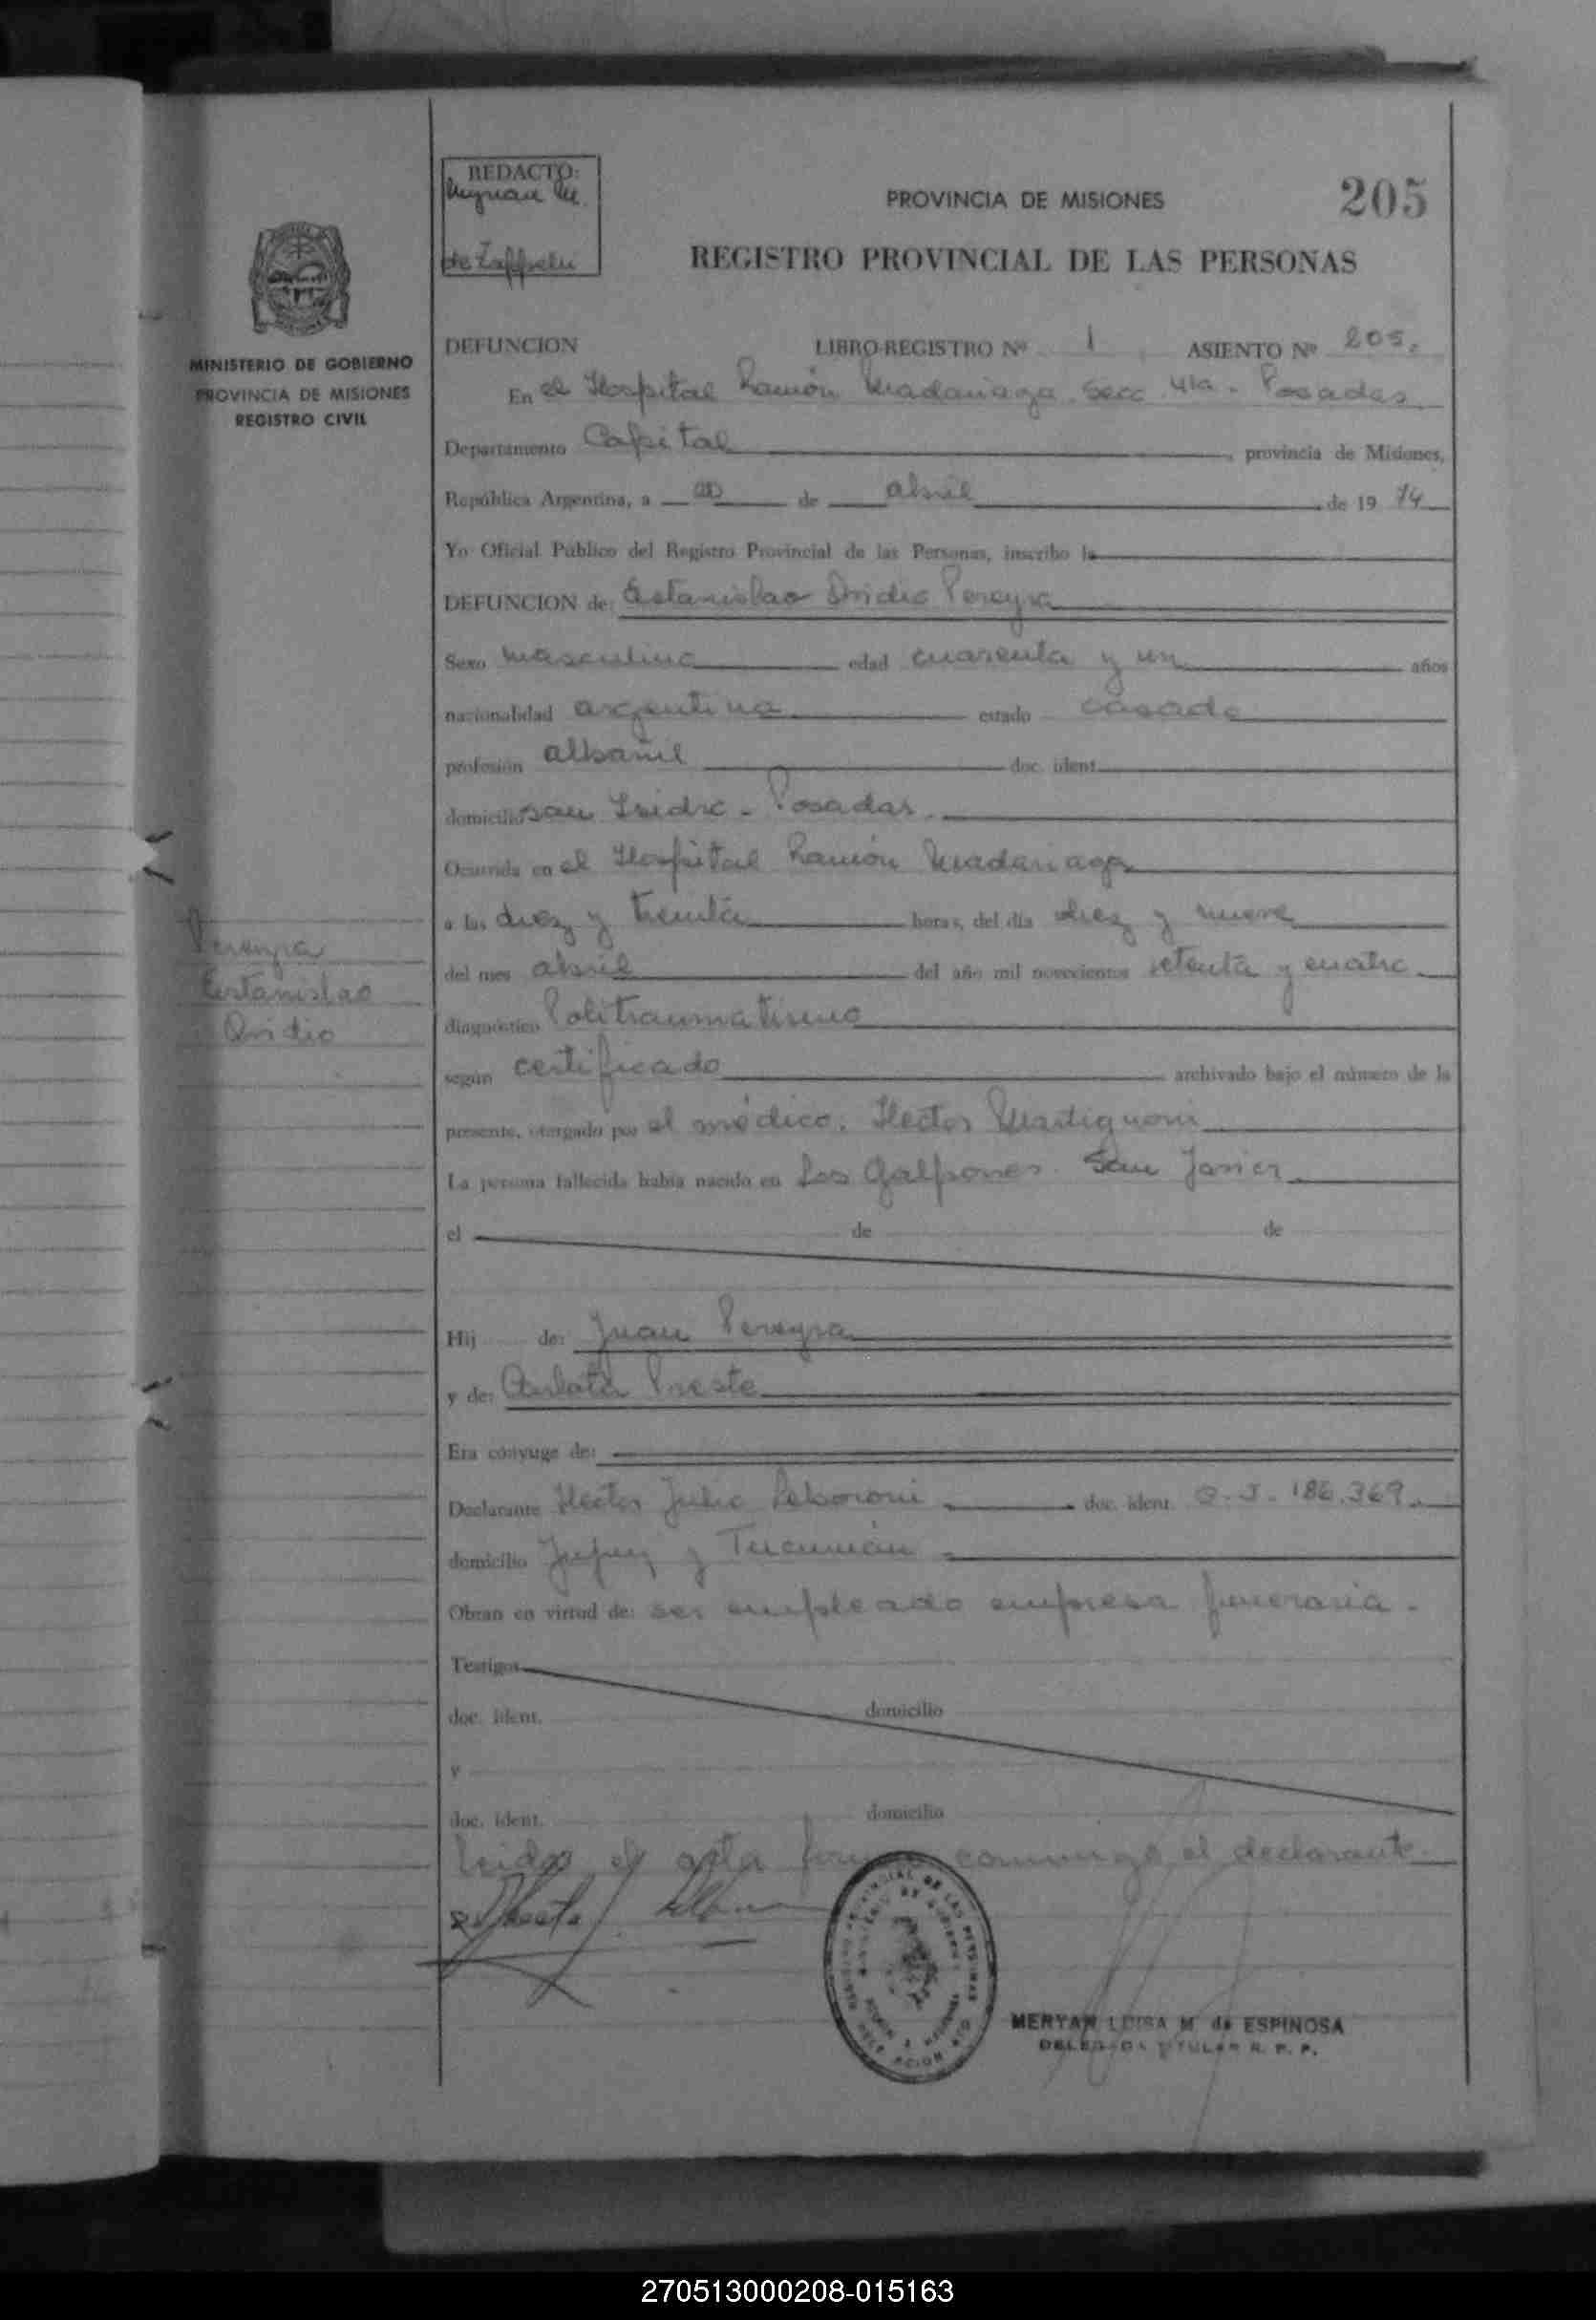 REDACTO:
de
PROVINCIA DE MISIONES
205
REGISTRO PROVINCIAL DE LAS PERSONAS
MINISTERIO DE GOBIERNO
PROVINCIA DE MISIONES
REGISTRO CIVIL
DEFUNCION LIBRO-REGISTRO Nº 1 ASIENTO Nº 205.
En el Hospital Ramón Madariaga. Secc. 4ta - Posadas
Departamento Capital, provincia de Misiones,
República Argentina, a 20 de abril de 1974
Yo Oficial Público del Registro Provincial de las Personas, inscribo la
DEFUNCION de: Estanislao Ovidio Pereyra
Sexo masculino edad cuarenta y un años
nacionalidad argentina estado casado
profesión albañil doc. ident.
domicilio San Isidro - Posadas.
Ocurrida en el Hospital Ramón Madariaga
a las diez y treinta horas, del día diez y nueve
del mes abril del año mil novecientos setenta y cuatro
Pereyra
Estanislao
Ovidio
diagnóstico Politraumatismo
según certificado archivado bajo el número de la
presente, otorgado por el médico. Hector Martignoni
La persona fallecida había nacido en Los Galpones. San Javier
el de de
Hij de: Juan Pereyra
y de: Preste
Era cónyuge de:
Declarante Hector Julio doc. ident. 186.369
domicilio Jujuy y Tucumán
Obran en virtud de: ser empleado empresa funeraria.
Testigos
doc. ident. domicilio
y
doc. ident. domicilio
Leida el acta firma conmigo el declarante.
MERYAN LUISA M. de ESPINOSA
DELEGADA TITULAR R. P. P.
270513000208-015163